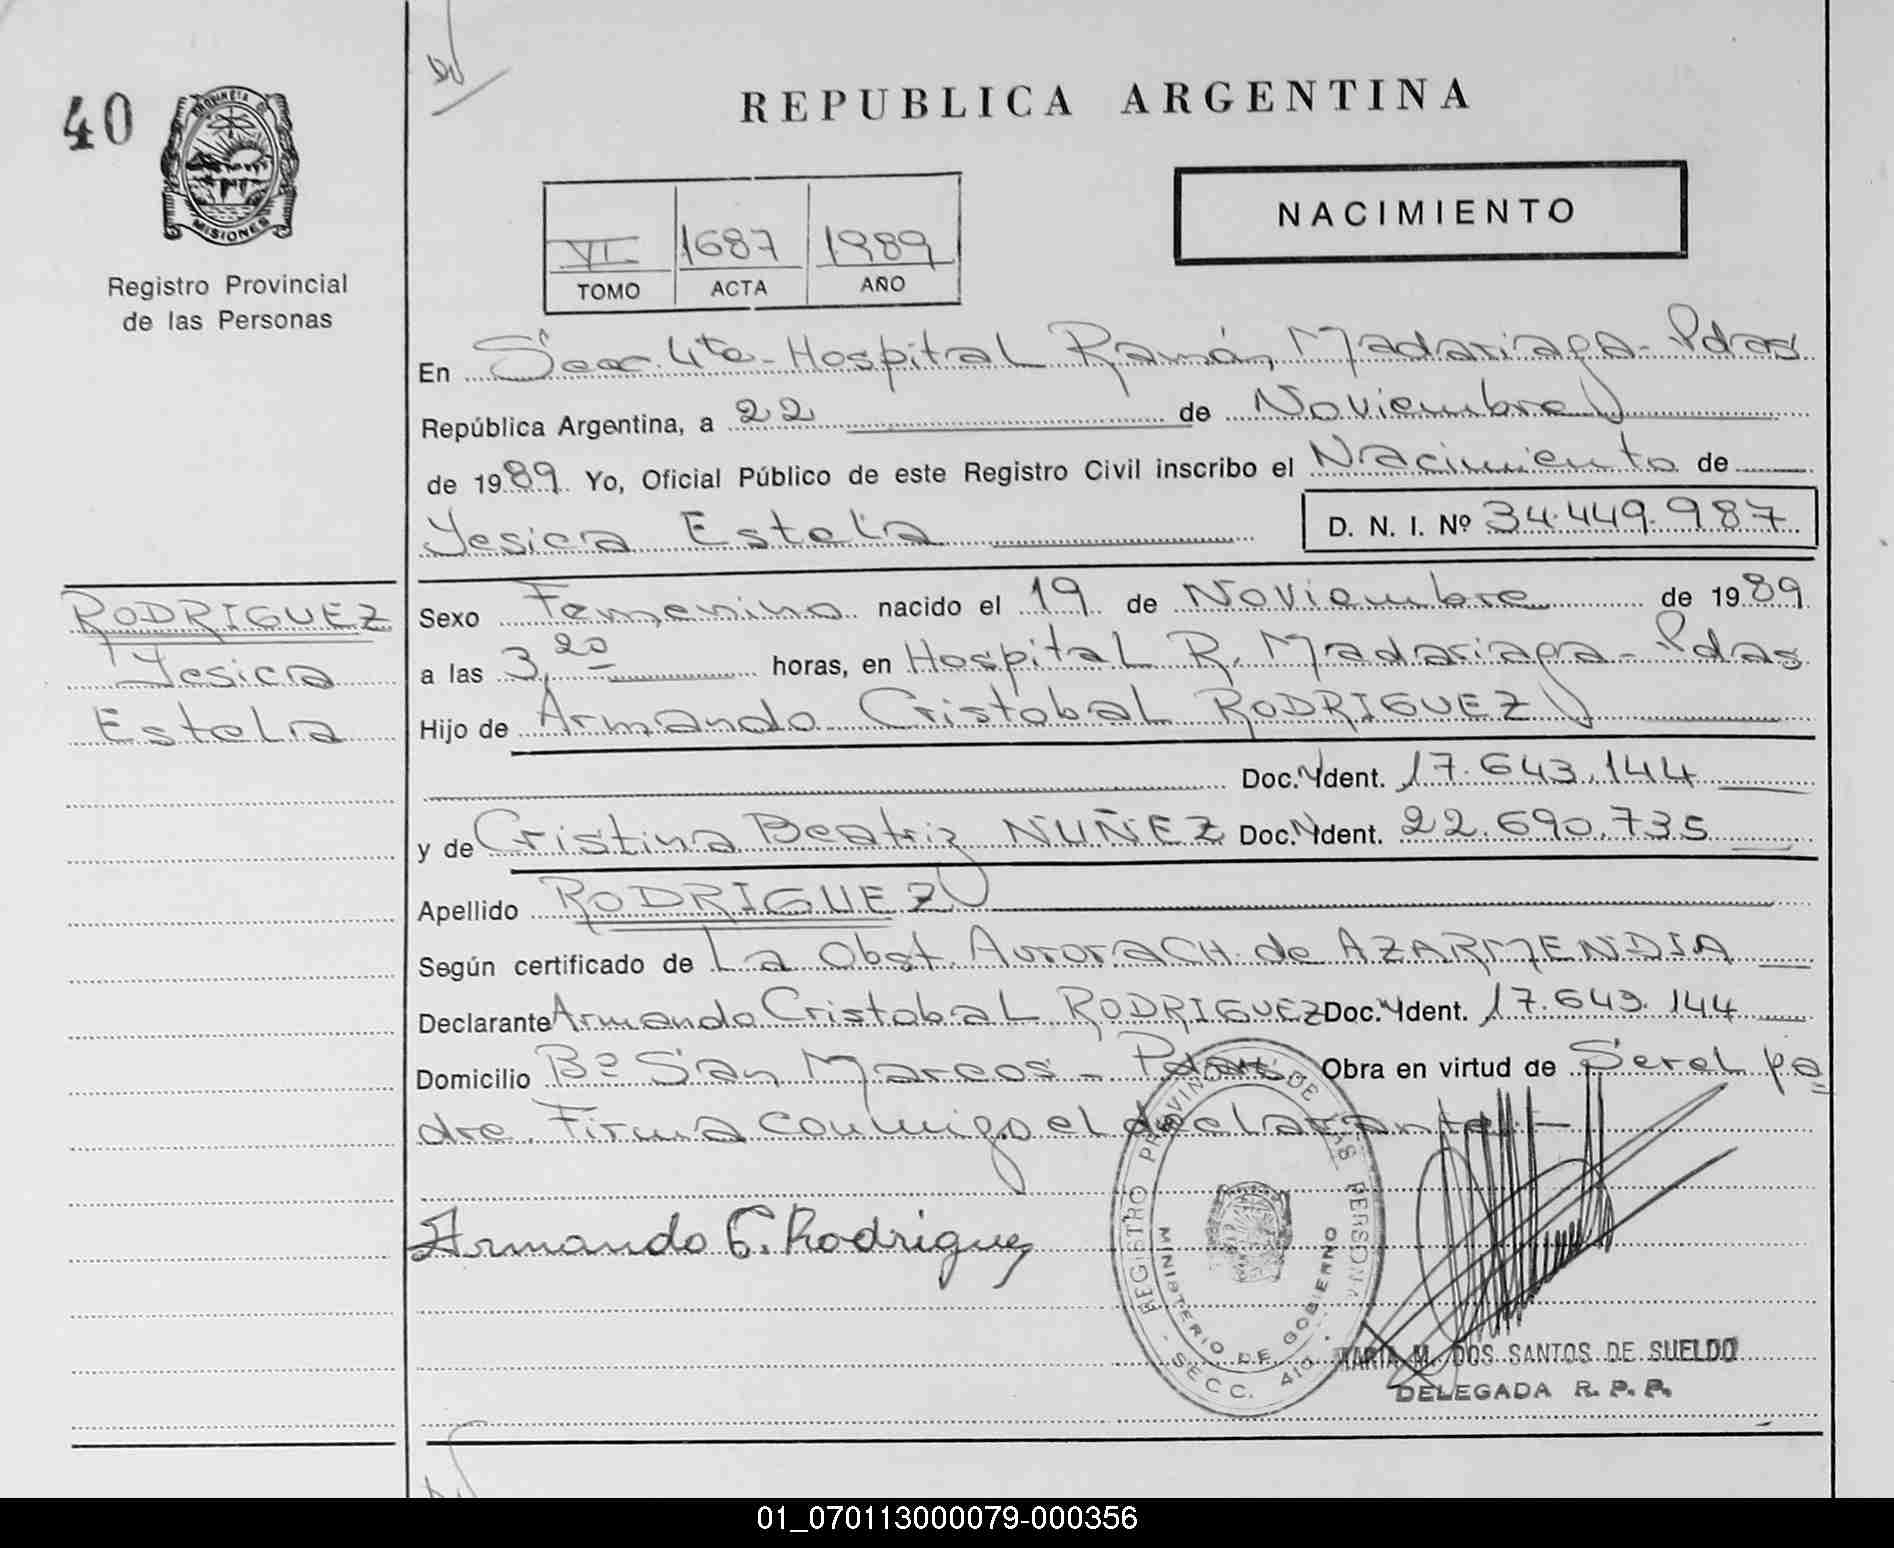 40
PROVINCIA DE
MISIONES
Registro Provincial
de las Personas
RODRIGUEZ
Yesica
Estela
REPUBLICA ARGENTINA
NACIMIENTO
VI 1687 1989
TOMO ACTA AÑO
En Secc. 4ta - Hospital Ramón Madariaga - Pdas
República Argentina, a 22 de Noviembre
de 1989 Yo, Oficial Público de este Registro Civil inscribo el Nacimiento de
Yesica Estela D. N. I. Nº 34.449.987
Sexo Femenino nacido el 19 de Noviembre de 1989
a las 3,20 horas, en Hospital R. Madariaga - Pdas
Hijo de Armando Cristobal RODRIGUEZ
Doc. Ident. 17.643.144
y de Cristina Beatriz NUÑEZ Doc. Ident. 22.690.735
Apellido RODRIGUEZ
Según certificado de La Obst. Aurora CH. de AZARMENDIA
Declarante Armando Cristobal RODRIGUEZ Doc. Ident. 17.643.144
Domicilio Bº San Marcos - Pdas Obra en virtud de Ser el pa
dre. Firma conmigo el declarante. -
Armando C. Rodriguez
REGISTRO PROVINCIAL DE LAS PERSONAS
MINISTERIO DE GOBIERNO
- SECC. 4ta -
MARIA M. DOS SANTOS DE SUELDO
DELEGADA R. P. P.
01_070113000079-000356